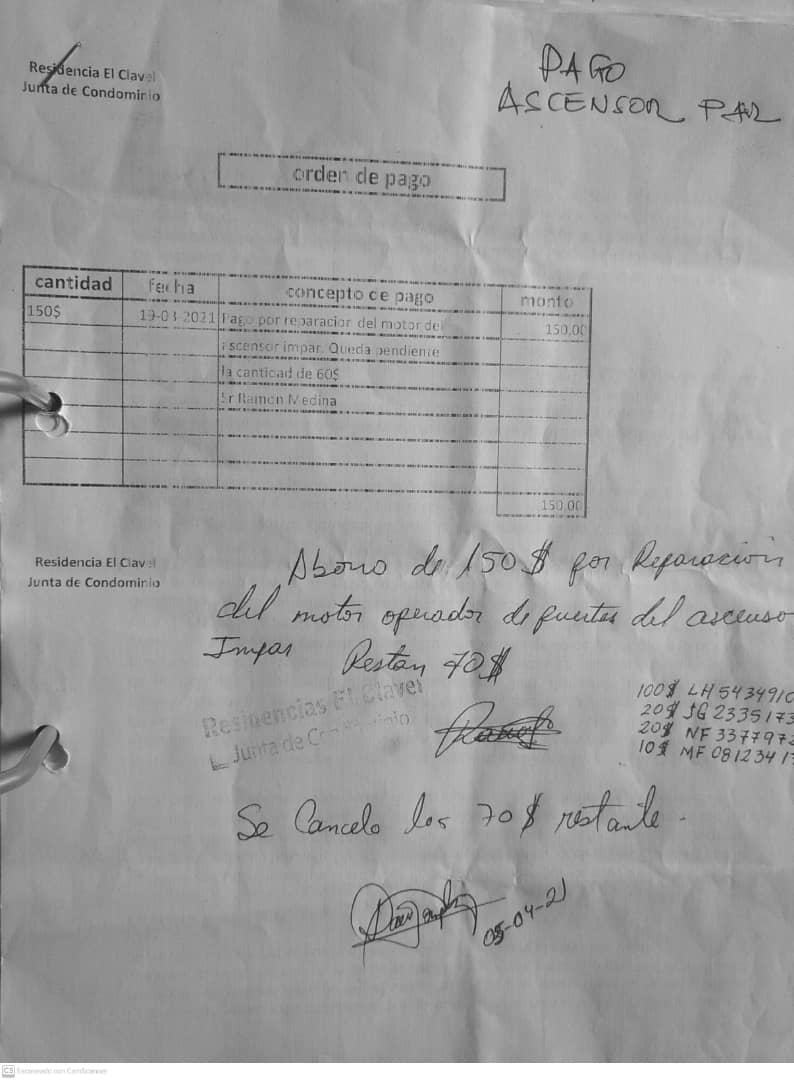 Residencia El Clavel
Junta de Condominio
PAGO
ASCENSOR PAR
orden de pago
cantidad fecha concepto de pago monto
150$ 19-03-2021 Pago por reparacion del motor del 150,00
ascensor impar. Queda pendiente
la cantidad de 60$
Sr Ramon Medina
150,00
Residencia El Clavel
Junta de Condominio
Abono de 150$ por Reparación
del motor operador de puertas del ascenso
Impar Restan 70$
Residencias El Clavel
Junta de Condominio
100$ LH5434910
20$ JG2335173
20$ NF3377972
10$ MF0812341
Se Cancelo los 70$ restante.
05-04-21
CS Escaneado con CamScanner